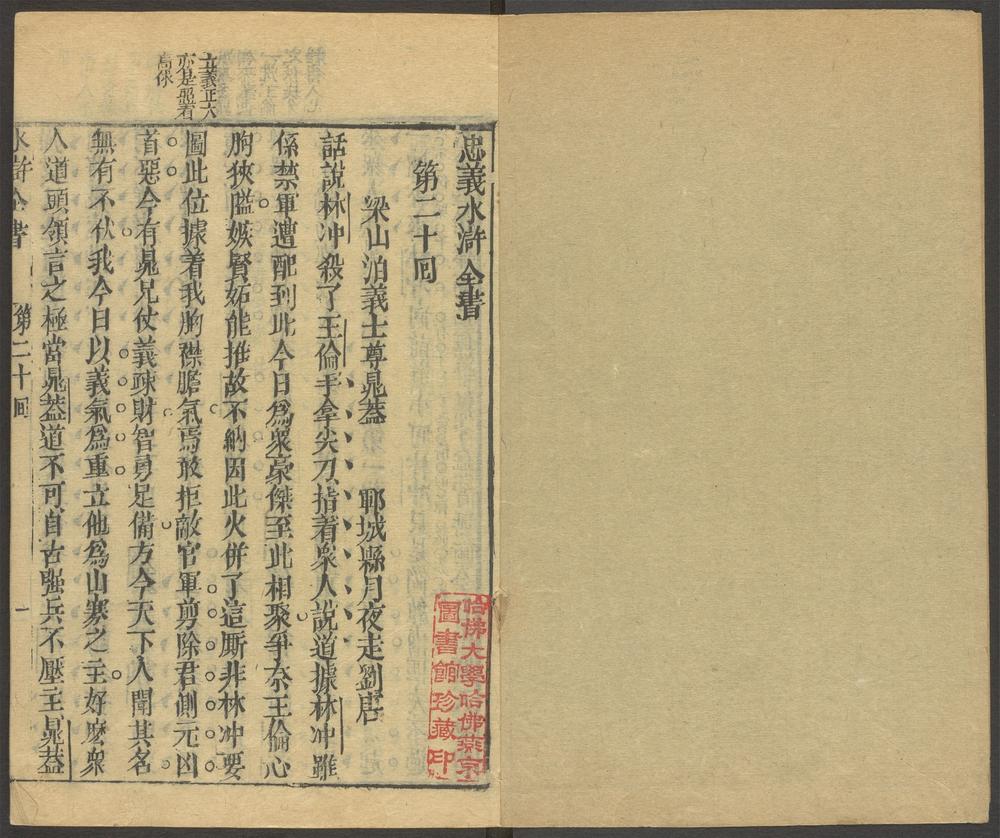 忠義水滸全書
第二十回
梁山泊義士尊晁蓋　鄆城縣月夜走劉唐
話說林冲殺了王倫手拿尖刀指着衆人說道據林冲雖
係禁軍遭配到此今日爲衆豪傑至此相聚爭奈王倫心
胸狹隘嫉賢妬能推故不納因此火併了這厮非林冲要
圖此位據着我胸襟膽氣焉敢拒敵官軍剪除君側元凶
首惡今有晁兄仗義疎財智勇足備方今天下人聞其名
無有不伏我今日以義氣爲重立他爲山寨之主好麽衆
人道頭領言之極當晁蓋道不可自古强兵不壓主晁蓋
立義正大
亦是照看
高俅
水滸全書
第二十回
一
哈佛大學哈佛燕京
圖書館珍藏印